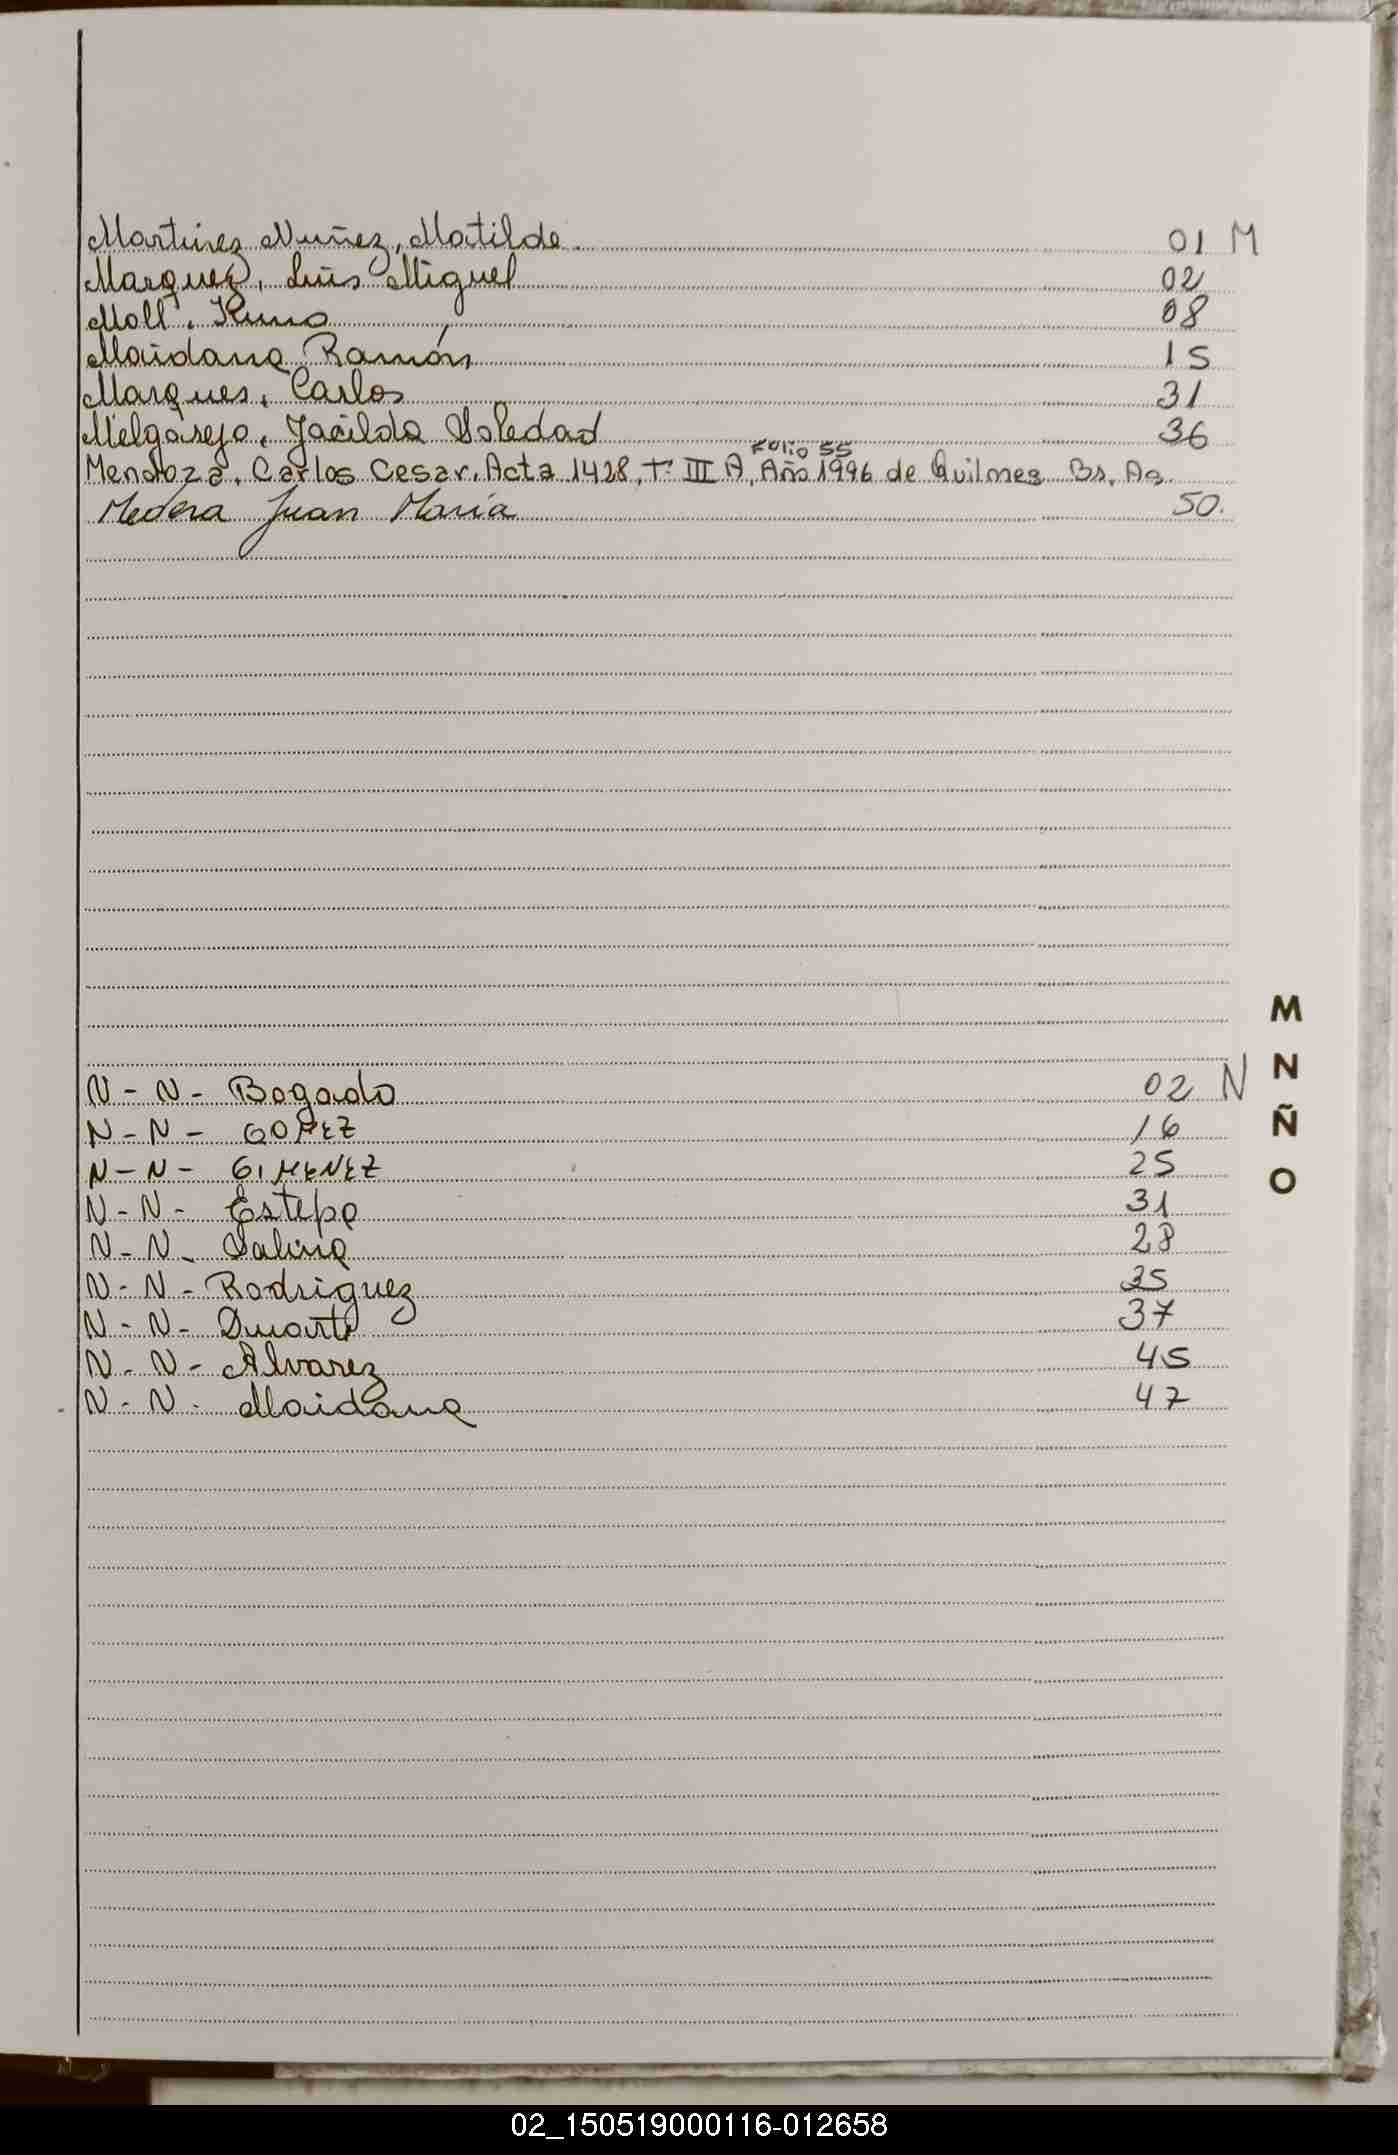 Martinez Nuñez, Matilde 01 M
Marquez, Luis Miguel 02
Moll, Kuno 08
Maidana Ramón 15
Marques, Carlos 31
Melgarejo, Jacilda Soledad 36
Folio 55
Mendoza, Carlos Cesar, Acta 1428, tº III A, Año 1996 de Quilmes Bs. As.
Medera Juan María 50.
M
N
Ñ
O
N - N - Bogado 02 N
N - N - GOMEZ 16
N - N - GIMENEZ 25
N - N - Estepa 31
N - N - Salina 28
N - N - Rodriguez 35
N - N - Duarte 37
N - N - Alvarez 45
N - N - Maidana 47
02_150519000116-012658